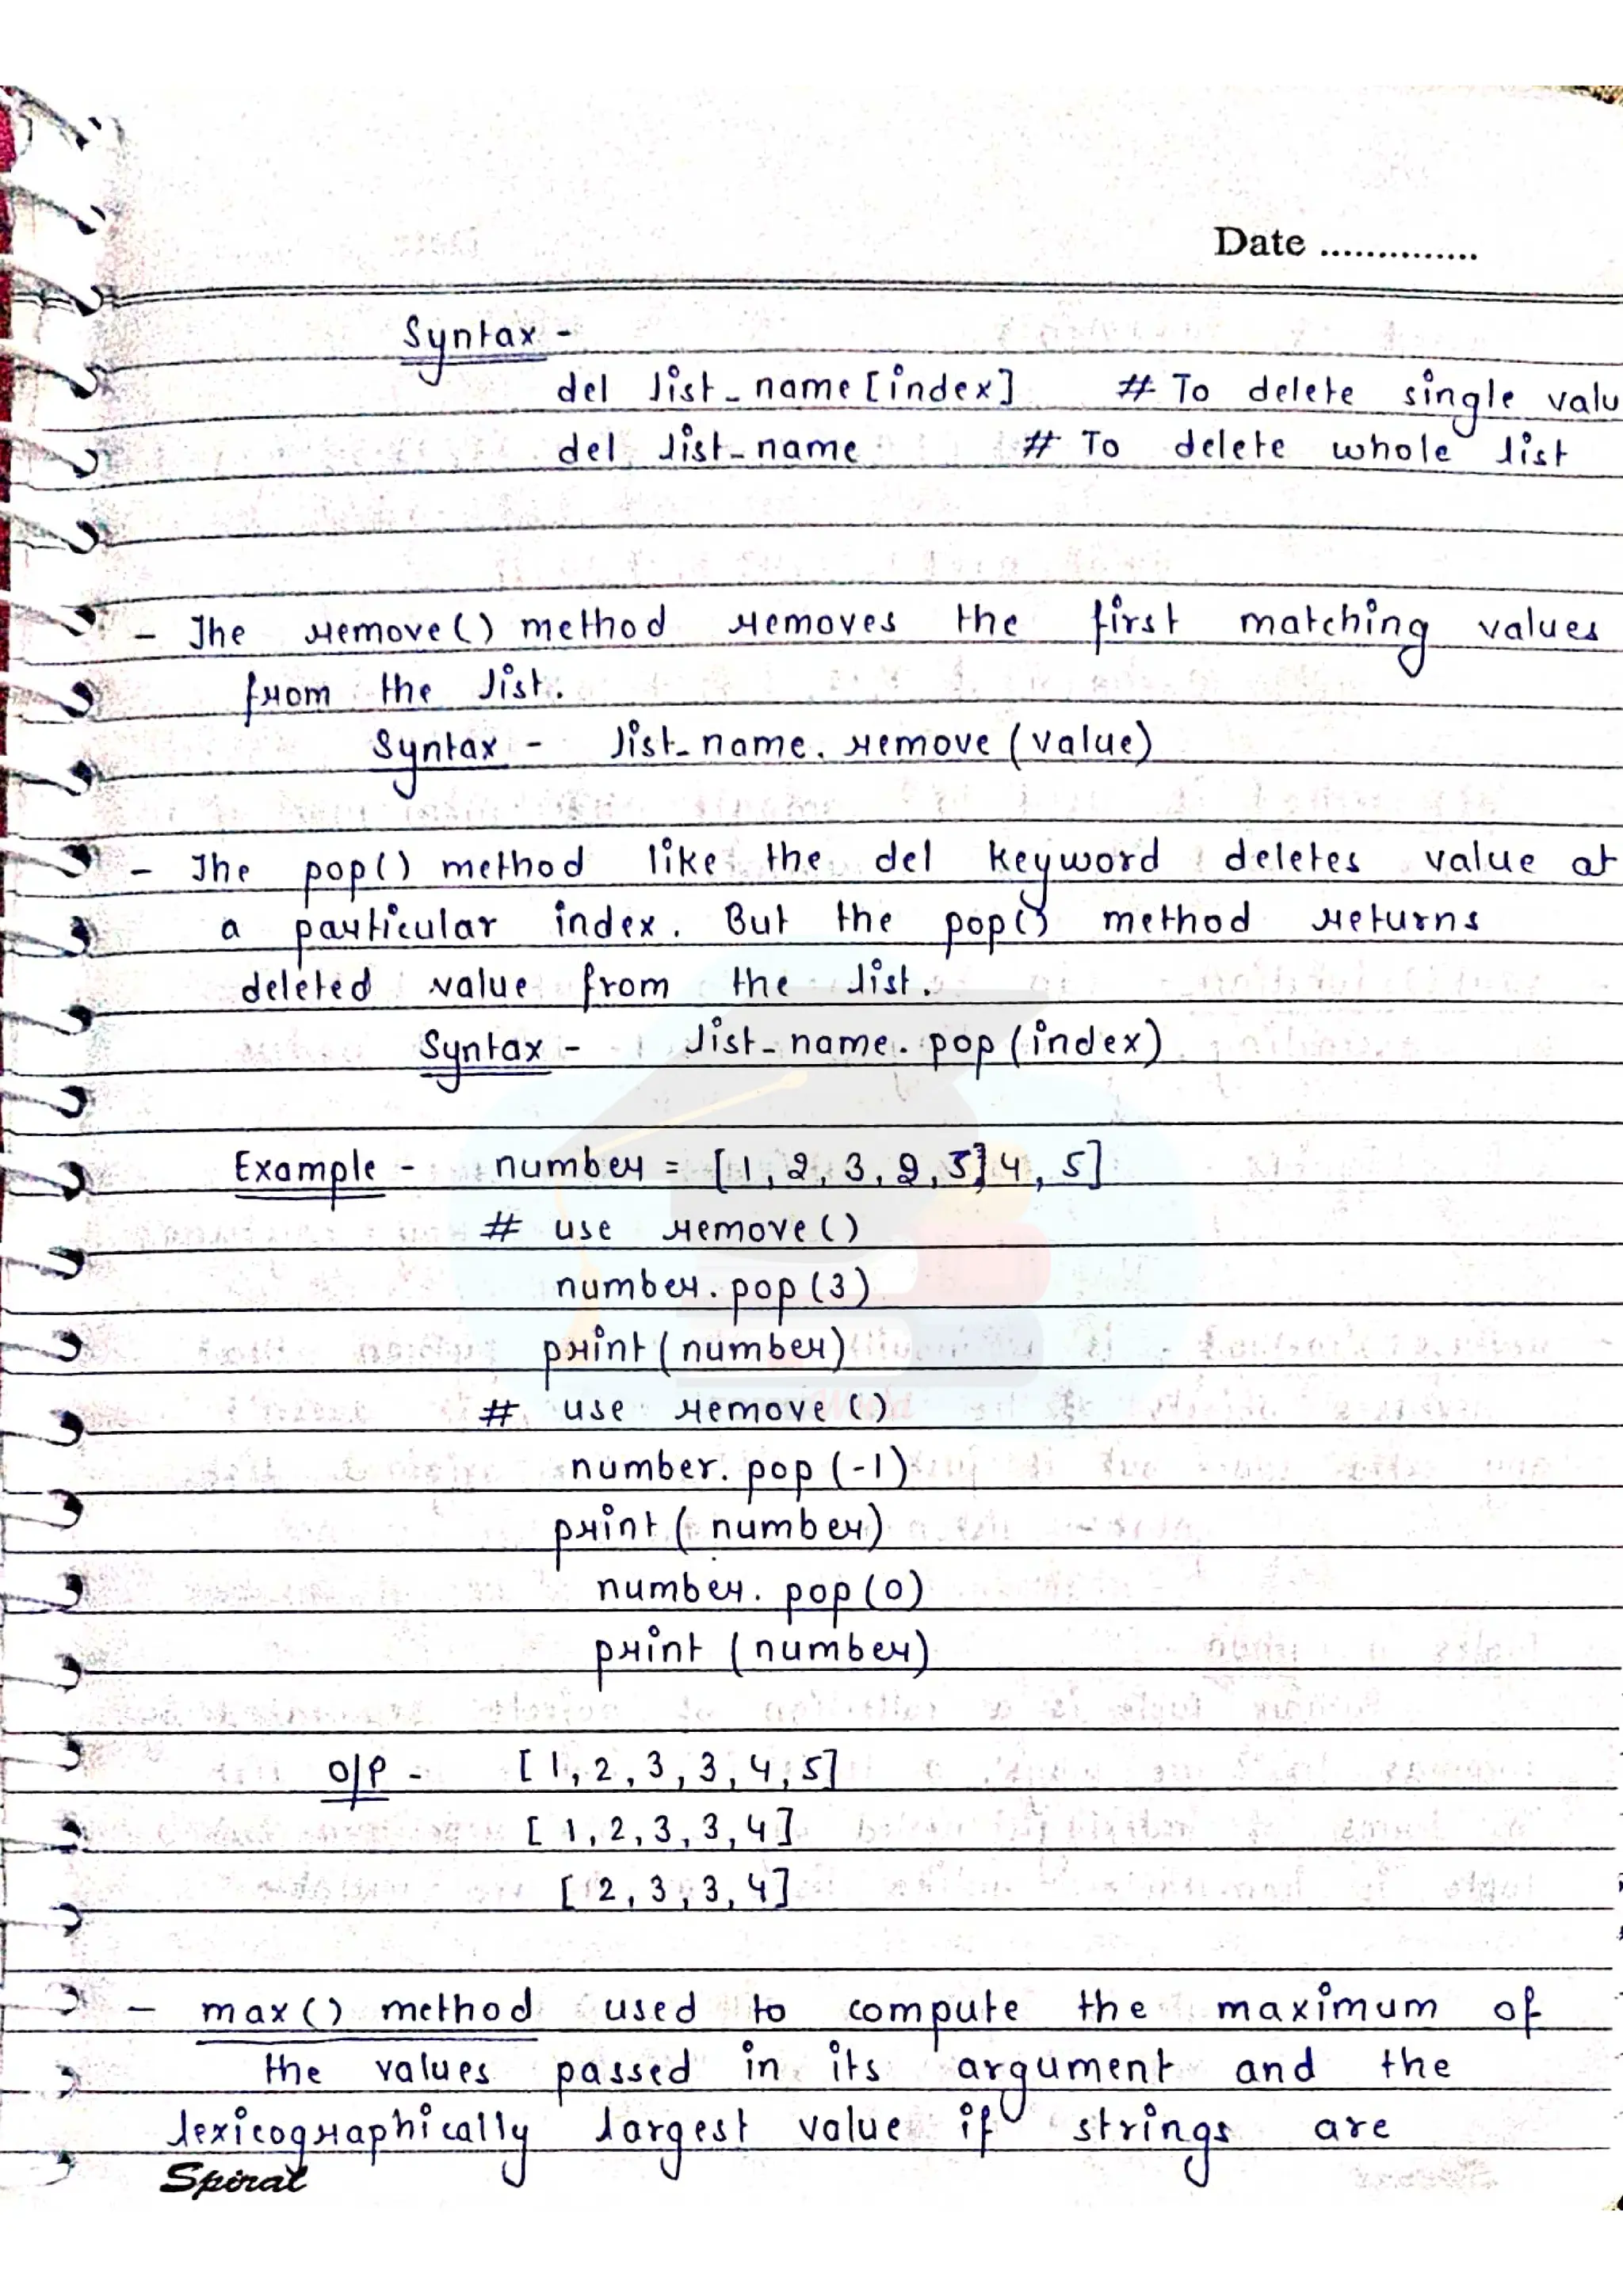 Date ..............
Syntax -
del list_name [index] # To delete single valu
del list_name # To delete whole list
- The remove() method removes the first matching values
from the list.
Syntax - list_name. remove (value)
- The pop() method like the del keyword deletes value at
a particular index. But the pop() method returns
deleted value from the list.
Syntax - list_name. pop (index)
Example - number = [1, 2, 3, 2, 3] 4, 5]
# use remove()
number. pop (3)
print (number)
# use remove ()
number. pop (-1)
print ( number)
number. pop (0)
print (number)
O/P - [1, 2, 3, 3, 4, 5]
[1, 2, 3, 3, 4]
[2, 3, 3, 4]
- max() method used to compute the maximum of
the values passed in its argument and the
lexicographically largest value if strings are
Spiral